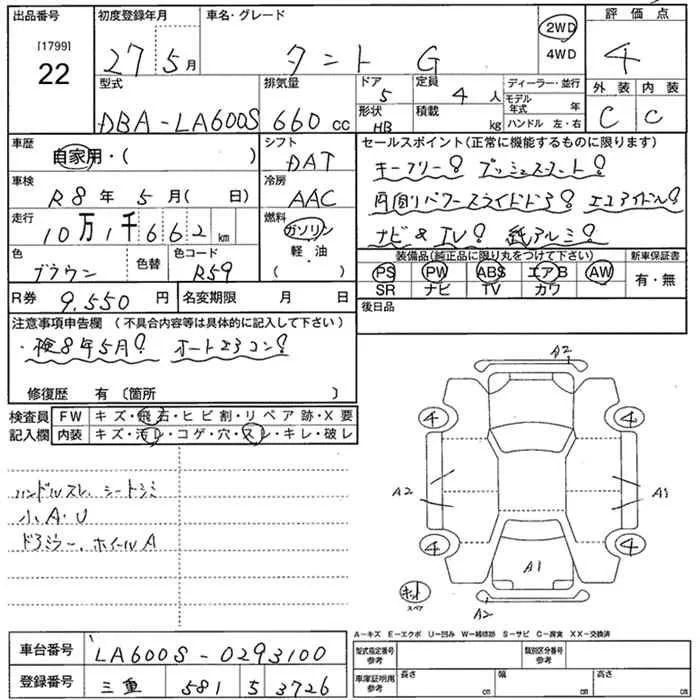 出品番号 初度登録年月 車名・グレード 評価点
[1799]
22 27年5月 タント G 2WD 4WD 4
型式 排気量 ドア 定員 ディーラー・並行 外装 内装
DBA-LA600S 660cc 5 4人 モデル年式 年 C C
形状 HB 積載 kg ハンドル 左・右
車歴 シフト セールスポイント(正常に機能するものに限ります)
自家用・( ) DAT キーフリー! プッシュスタート!
車検 冷房
R8年5月( 日) AAC 両側パワースライドドア! エコアイドル!
走行 燃料
10万1千662km ガソリン ナビ&TV! 純アルミ!
軽油
( )
色 色替 色コード 装備品(純正品に限り丸をつけて下さい) 新車保証書
ブラウン R59 PS PW ABS エアB AW 有・無
SR ナビ TV カワ
R券 9,550円 名変期限 月 日 後日品
注意事項申告欄(不具合内容等は具体的に記入して下さい)
・検8年5月! オートエアコン!
修復歴 有〔箇所 〕
検査員 FW キズ・飛石・ヒビ割・リペア跡・X要
記入欄 内装 キズ・汚レ・コゲ・穴・スレ・キレ・破レ
ハンドルスレ、シートシミ
小A・U
ドアミラー、ホイールA
A2
4 4
A2 A1
4 4
A1
キット
スペア
A2
A−キズ E−エクボ U−凹み W−補修跡 S−サビ C−腐食 XX−交換済
車台番号 LA600S-0293100 型式指定番号 参考 類別区分番号 参考
登録番号 三重 581 す 3726 車庫証明用 参考 長さ cm 幅 cm 高さ cm